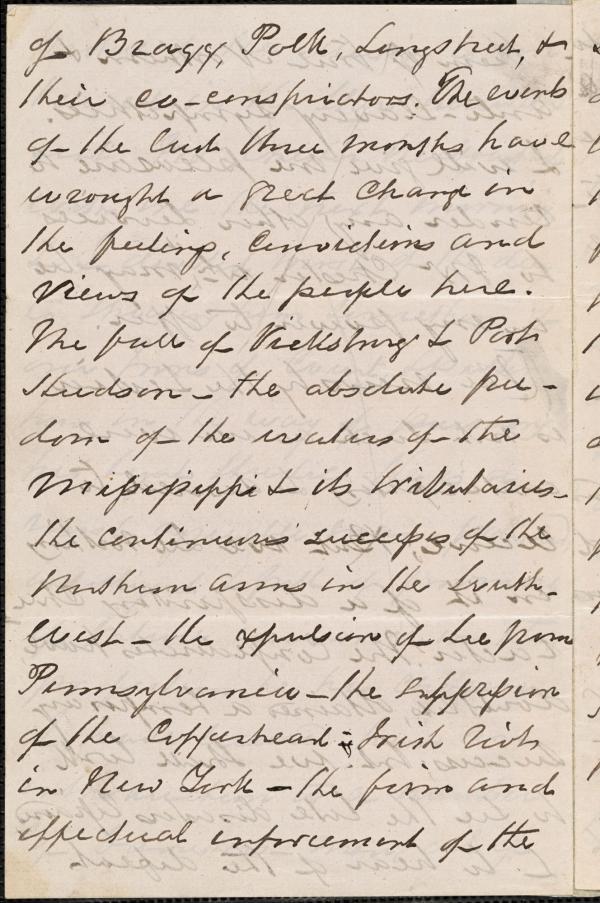 of Bragg, Polk, Longstreet, &
their co-conspirators. The events
of the last three months have
wrought a great change in
the feelings, convictions and
views of the people here.
The fall of Vicksburg & Port
Hudson - the absolute free-
dom of the waters of the
Mississippi & its tributaries -
the continuous success of the
Northern arms in the South-
West - the expulsion of Lee from
Pennsylvania - the suppression
of the Copperhead - Irish riots
in New York - the firm and
effectual enforcement of the